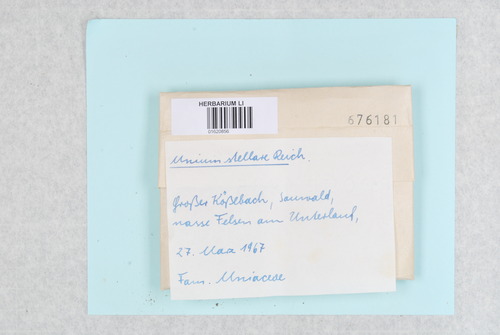 HERBARIUM LI
01620856
676181
Mnium stellare Reich.
Großer Kößlbach, Sauwald,
nasse Felsen am Unterlauf,
27. Mai 1967
Fam. Mniaceae